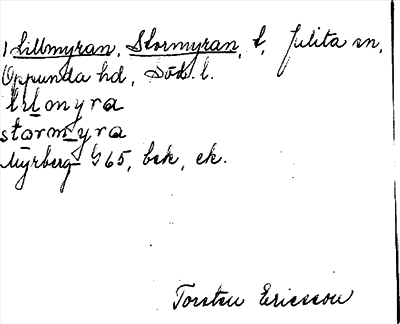 1 Lillmyran, Stormyran, t, Julita sn,
Oppunda hd, Söd. l.
lilmyra
stormyra
Myrberg G 65, bsk, ek.
Torsten Ericsson